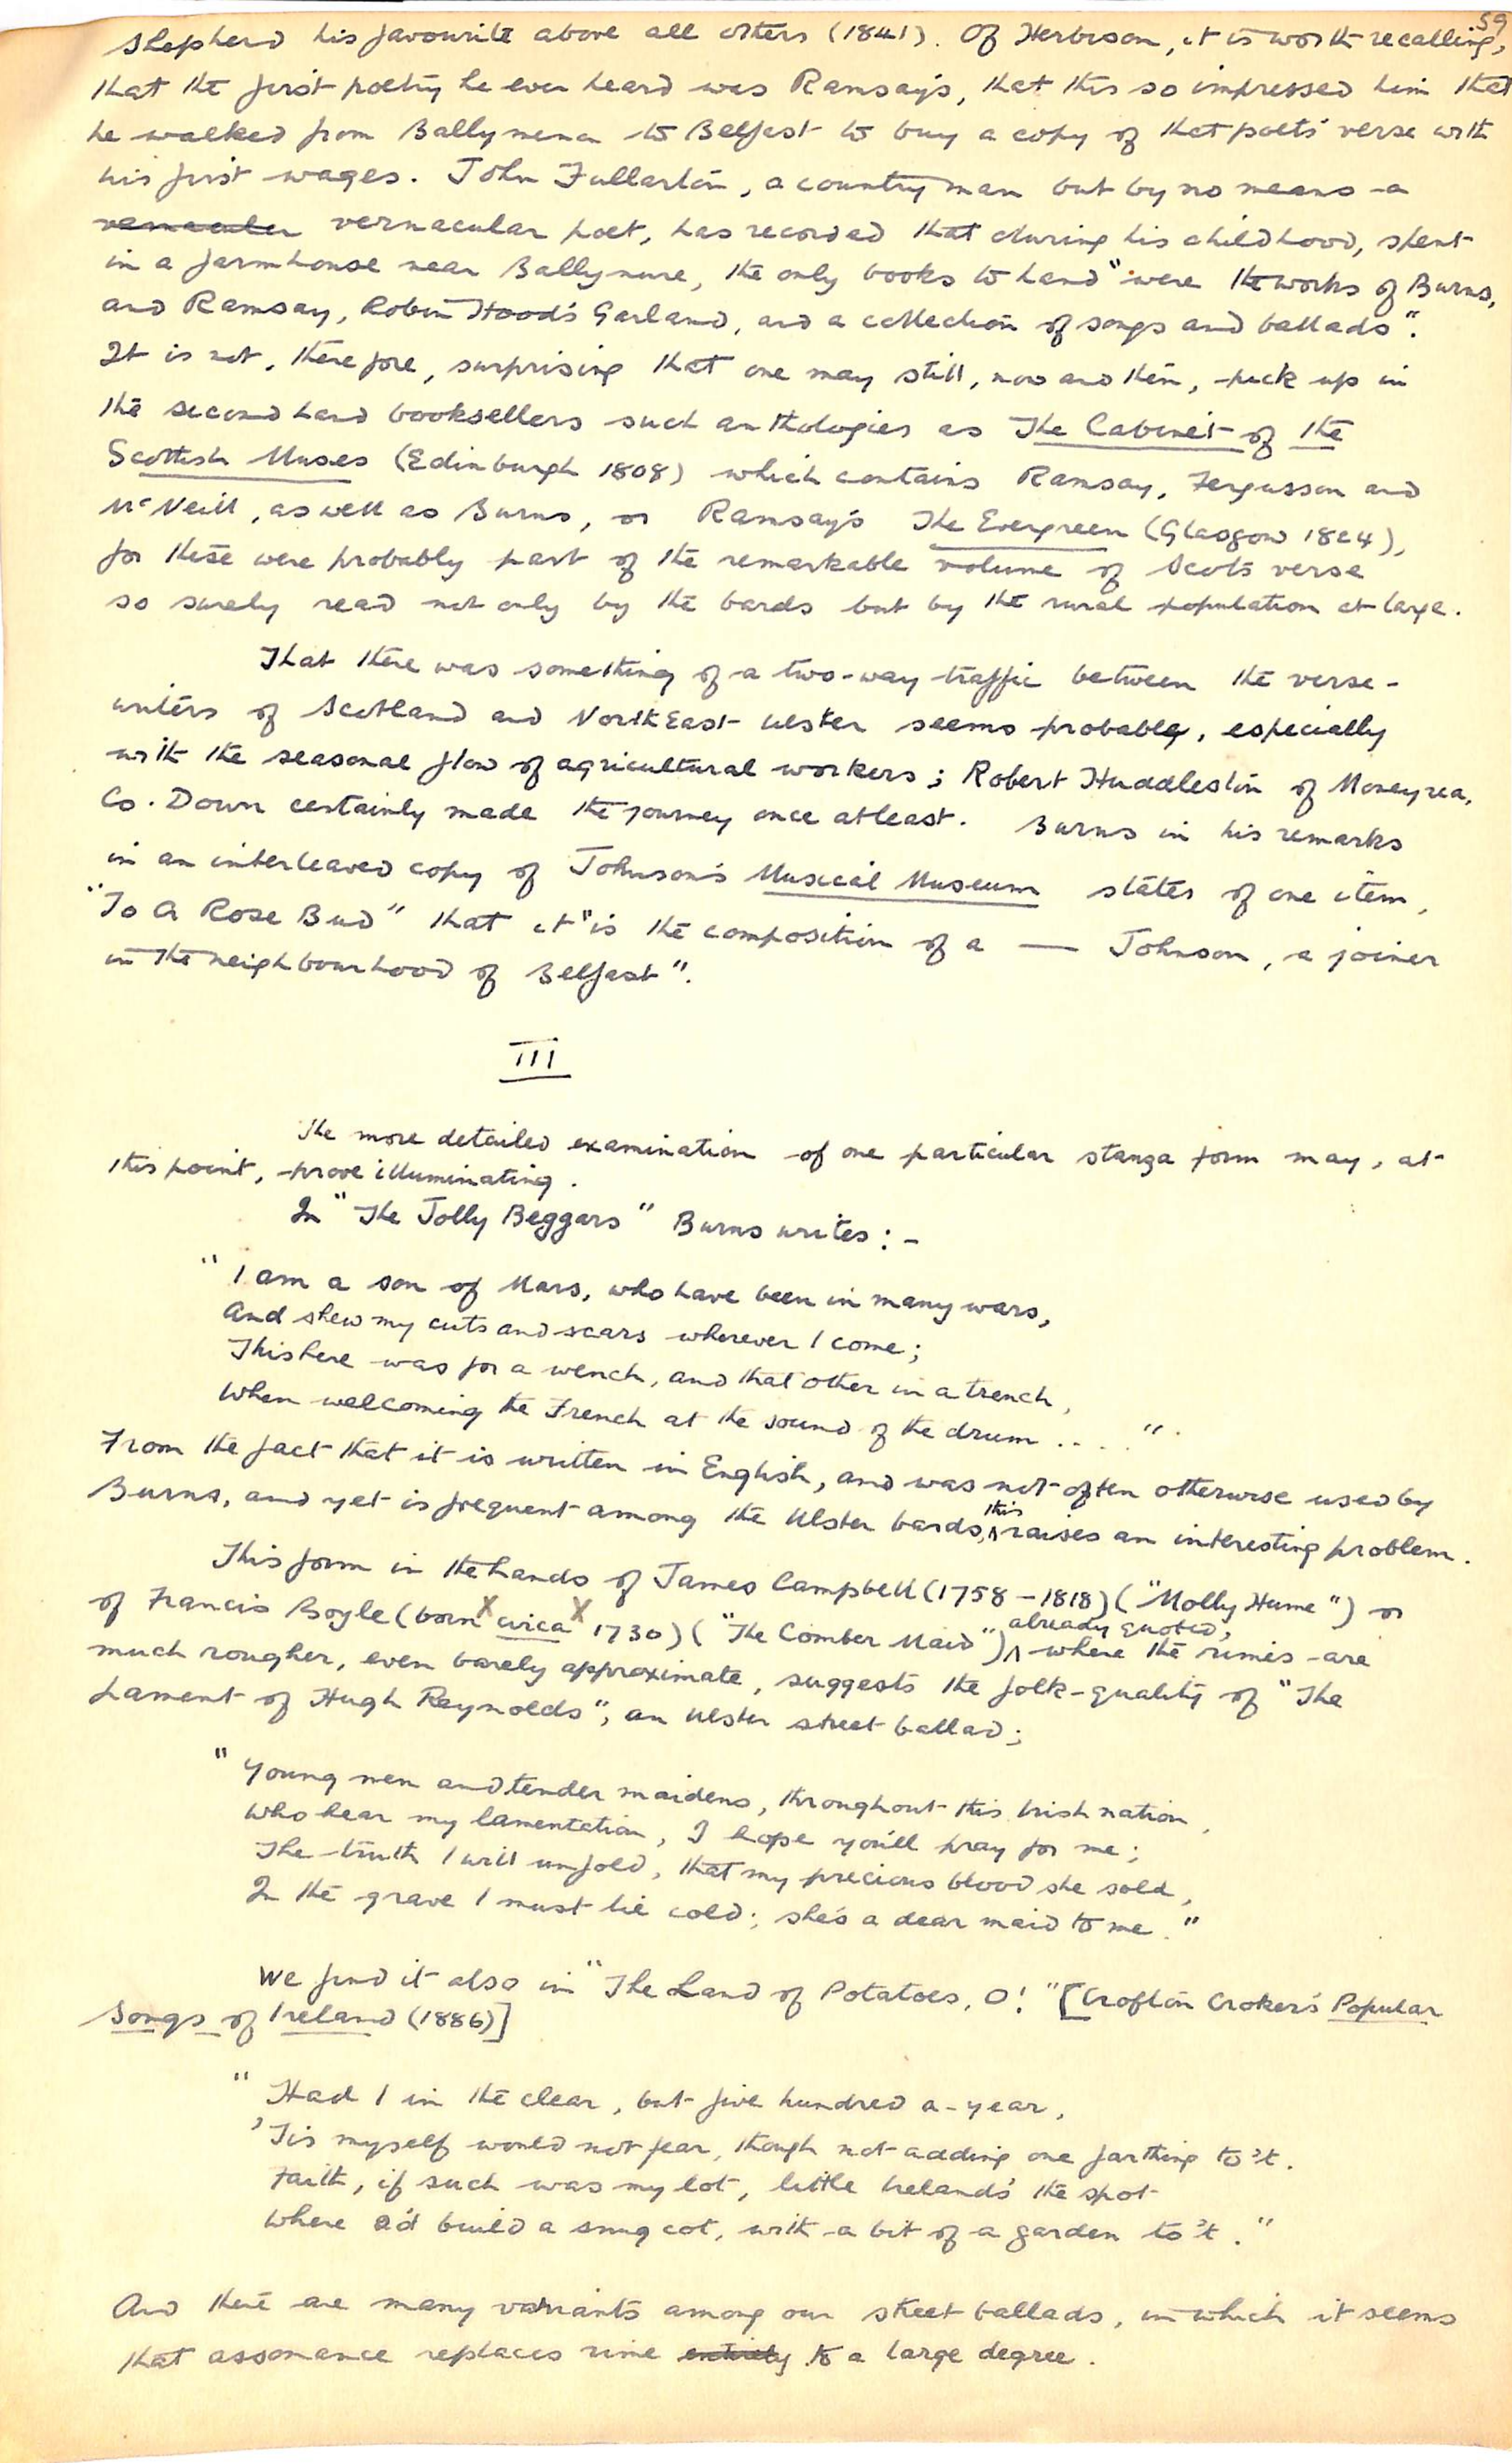 59
Shepherd his favourite above all others (1841). Of Herbison, it is worth recalling,
that the first poetry he ever heard was Ramsay's, that this so impressed him that
he walked from Ballymena to Belfast to buy a copy of that poets' verse with
his first wages. John Fullarton, a country man but by no means a
vernacular vernacular poet, has recorded that during his childhood, spent
in a farmhouse near Ballynure, the only books to hand "were the works of Burns,
and Ramsay, Robin Hood's Garland, and a collection of songs and ballads".
It is not, therefore, surprising that one may still, now and then, pick up in
the second hand booksellers such anthologies as The Cabinet of the
Scottish Muses (Edinburgh 1808) which contains Ramsay, Fergusson and
McNeill, as well as Burns, or Ramsay's The Evergreen (Glasgow 1824),
for these were probably part of the remarkable volume of Scots verse
so surely read not only by the bards but by the rural population at large.
That there was something of a two-way traffic between the verse-
writers of Scotland and North East Ulster seems probable, especially
with the seasonal flow of agricultural workers; Robert Huddleston of Moneyrea,
Co. Down certainly made the journey once at least. Burns in his remarks
in an interleaved copy of Johnson's Musical Museum states of one item,
"To A Rose Bud" that it "is the composition of a — Johnson, a joiner
in the neighbourhood of Belfast".
III
The more detailed examination of one particular stanza form may, at
this point, prove illuminating.
In "The Jolly Beggars" Burns writes:-
"I am a son of Mars, who have been in many wars,
And shew my cuts and scars wherever I come;
This here was for a wench, and that other in a trench,
When welcoming the French at the sound of the drum ...."
From the fact that it is written in English, and was not often otherwise used by
Burns, and yet is frequent among the Ulster bards, this raises an interesting problem.
This form in the hands of James Campbell (1758 - 1818) ("Molly Hume") or
of Francis Boyle (born circa 1730) ("The Comber Maid") already quoted, where the rimes are
much rougher, even barely approximate, suggests the folk-quality of "The
Lament of Hugh Reynolds", an Ulster street ballad;
"Young men and tender maidens, throughout this Irish nation,
Who hear my lamentation, I hope you'll pray for me;
The truth I will unfold, that my precious blood she sold,
In the grave I must lie cold; she's a dear maid to me."
We find it also in "The Land of Potatoes, O!" [Crofton Croker's Popular
Songs of Ireland (1886)]
"Had I in the clear, but five hundred a-year,
'Tis myself would not fear, though not adding one farthing to't.
Faith, if such was my lot, little Ireland's the spot
Where I'd build a snug cot, with a bit of a garden to't."
And there are many variants among our street ballads, in which it seems
that assonance replaces rime entirely to a large degree.